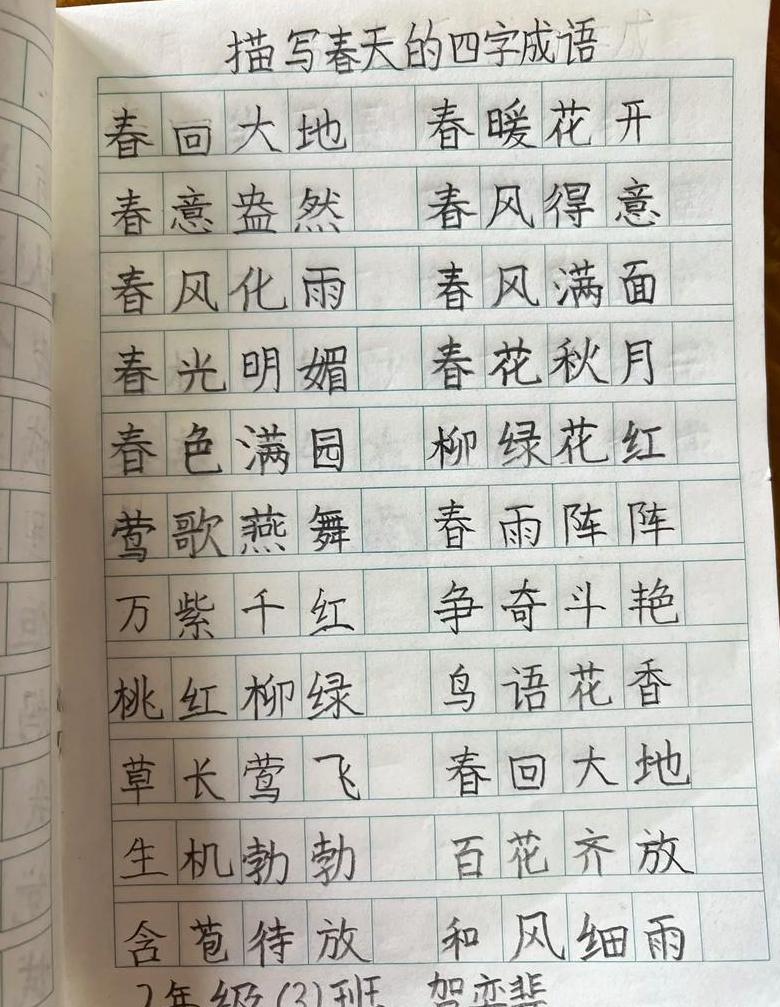 描写春天的四字成语
春回大地 春暖花开
春意盎然 春风得意
春风化雨 春风满面
春光明媚 春花秋月
春色满园 柳绿花红
莺歌燕舞 春雨阵阵
万紫千红 争奇斗艳
桃红柳绿 鸟语花香
草长莺飞 春回大地
生机勃勃 百花齐放
含苞待放 和风细雨
2年级(3)班